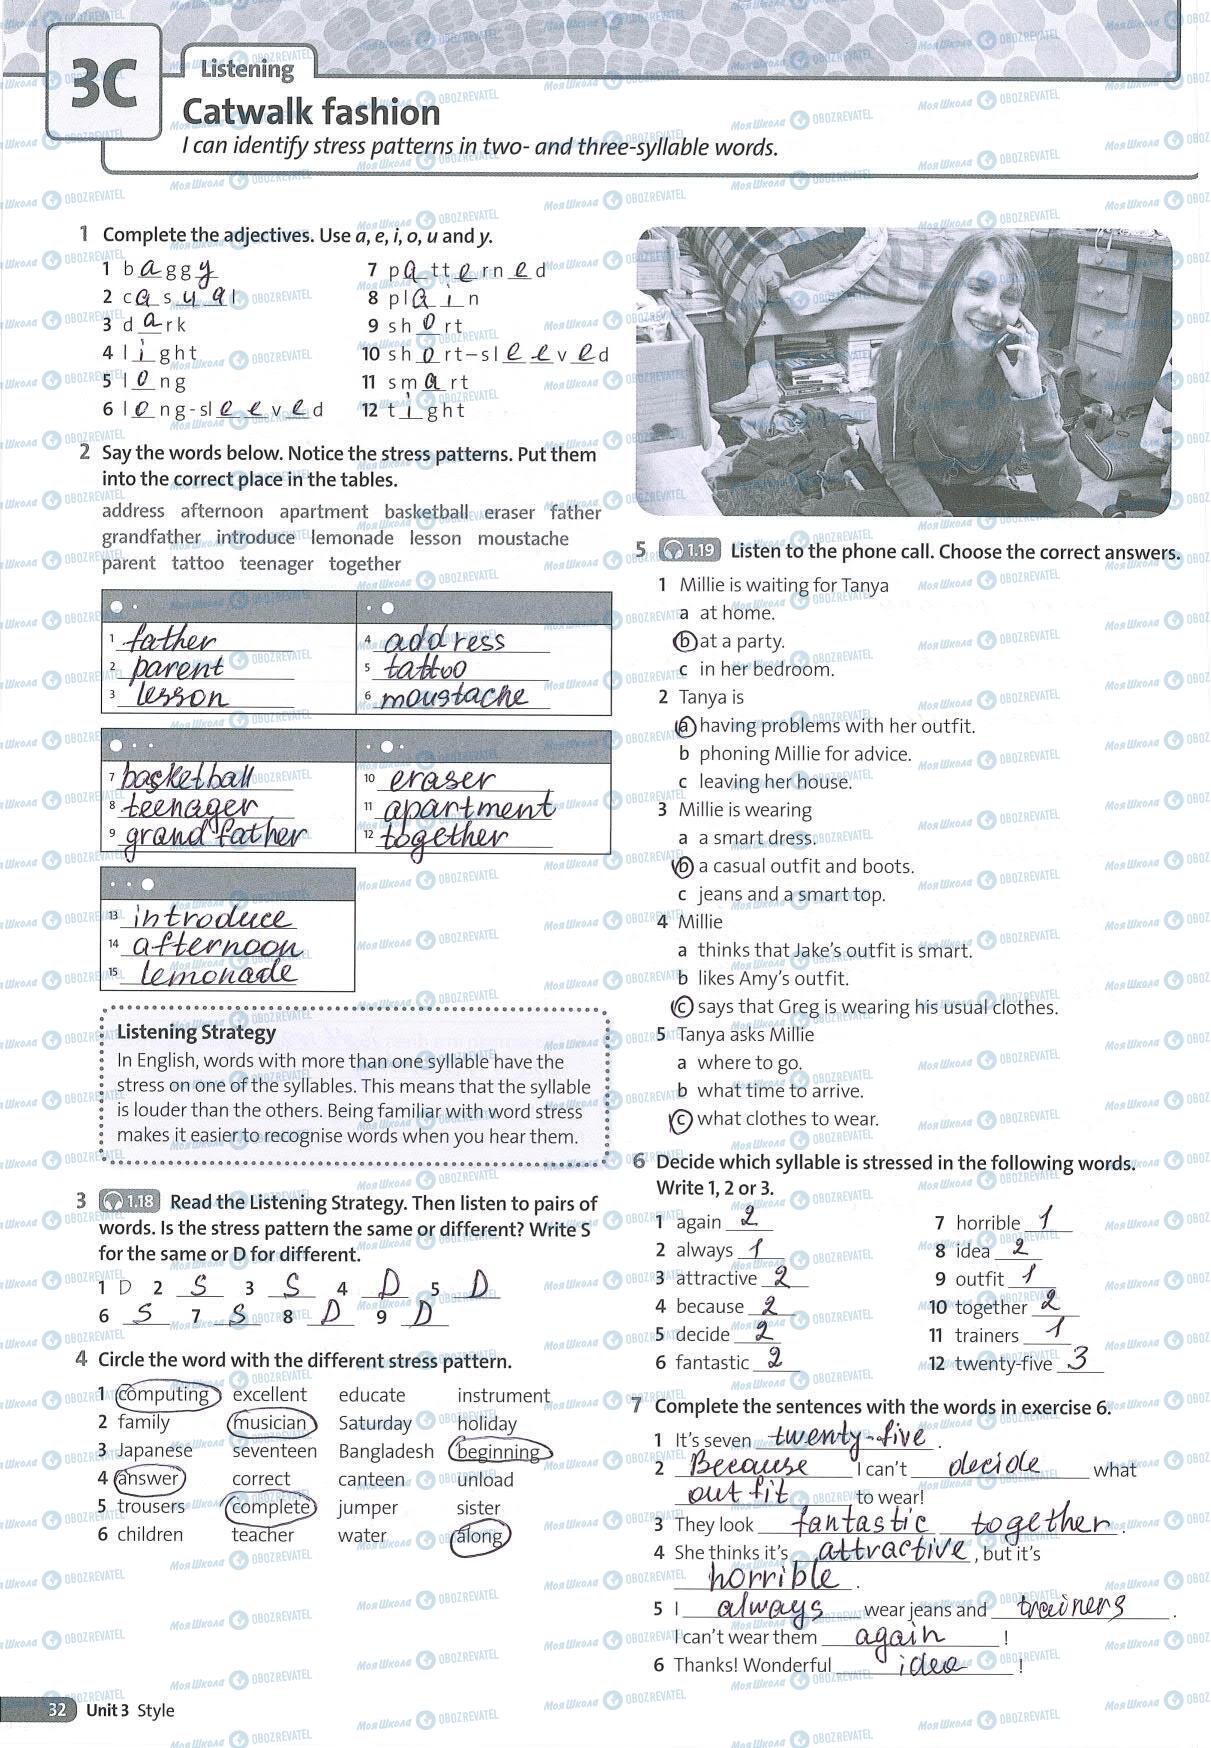 3C
Listening
Catwalk fashion
I can identify stress patterns in two- and three-syllable words.
1 Complete the adjectives. Use a, e, i, o, u and y.
1 baggy
2 casual
3 dark
4 light
5 long
6 long-sleeved
7 patterned
8 plain
9 short
10 short-sleeved
11 smart
12 tight
2 Say the words below. Notice the stress patterns. Put them
into the correct place in the tables.
address afternoon apartment basketball eraser father
grandfather introduce lemonade lesson moustache
parent tattoo teenager together
1 father
2 parent
3 lesson
4 address
5 tattoo
6 moustache
7 basketball
8 teenager
9 grandfather
10 eraser
11 apartment
12 together
13 introduce
14 afternoon
15 lemonade
Listening Strategy
In English, words with more than one syllable have the
stress on one of the syllables. This means that the syllable
is louder than the others. Being familiar with word stress
makes it easier to recognise words when you hear them.
3 1.18 Read the Listening Strategy. Then listen to pairs of
words. Is the stress pattern the same or different? Write S
for the same or D for different.
1 D 2 S 3 S 4 D 5 D
6 S 7 S 8 D 9 D
4 Circle the word with the different stress pattern.
1 computing excellent educate instrument
2 family musician Saturday holiday
3 Japanese seventeen Bangladesh beginning
4 answer correct canteen unload
5 trousers complete jumper sister
6 children teacher water along
5 1.19 Listen to the phone call. Choose the correct answers.
1 Millie is waiting for Tanya
a at home.
b at a party.
c in her bedroom.
2 Tanya is
a having problems with her outfit.
b phoning Millie for advice.
c leaving her house.
3 Millie is wearing
a a smart dress.
b a casual outfit and boots.
c jeans and a smart top.
4 Millie
a thinks that Jake's outfit is smart.
b likes Amy's outfit.
c says that Greg is wearing his usual clothes.
5 Tanya asks Millie
a where to go.
b what time to arrive.
c what clothes to wear.
6 Decide which syllable is stressed in the following words.
Write 1, 2 or 3.
1 again 2
2 always 1
3 attractive 2
4 because 2
5 decide 2
6 fantastic 2
7 horrible 1
8 idea 2
9 outfit 1
10 together 2
11 trainers 1
12 twenty-five 3
7 Complete the sentences with the words in exercise 6.
1 It's seven twenty-five.
2 Because I can't decide what
outfit to wear!
3 They look fantastic together.
4 She thinks it's attractive, but it's
horrible.
5 I always wear jeans and trainers.
I can't wear them again!
6 Thanks! Wonderful idea!
32 Unit 3 Style
МояШкола OBOZREVATEL